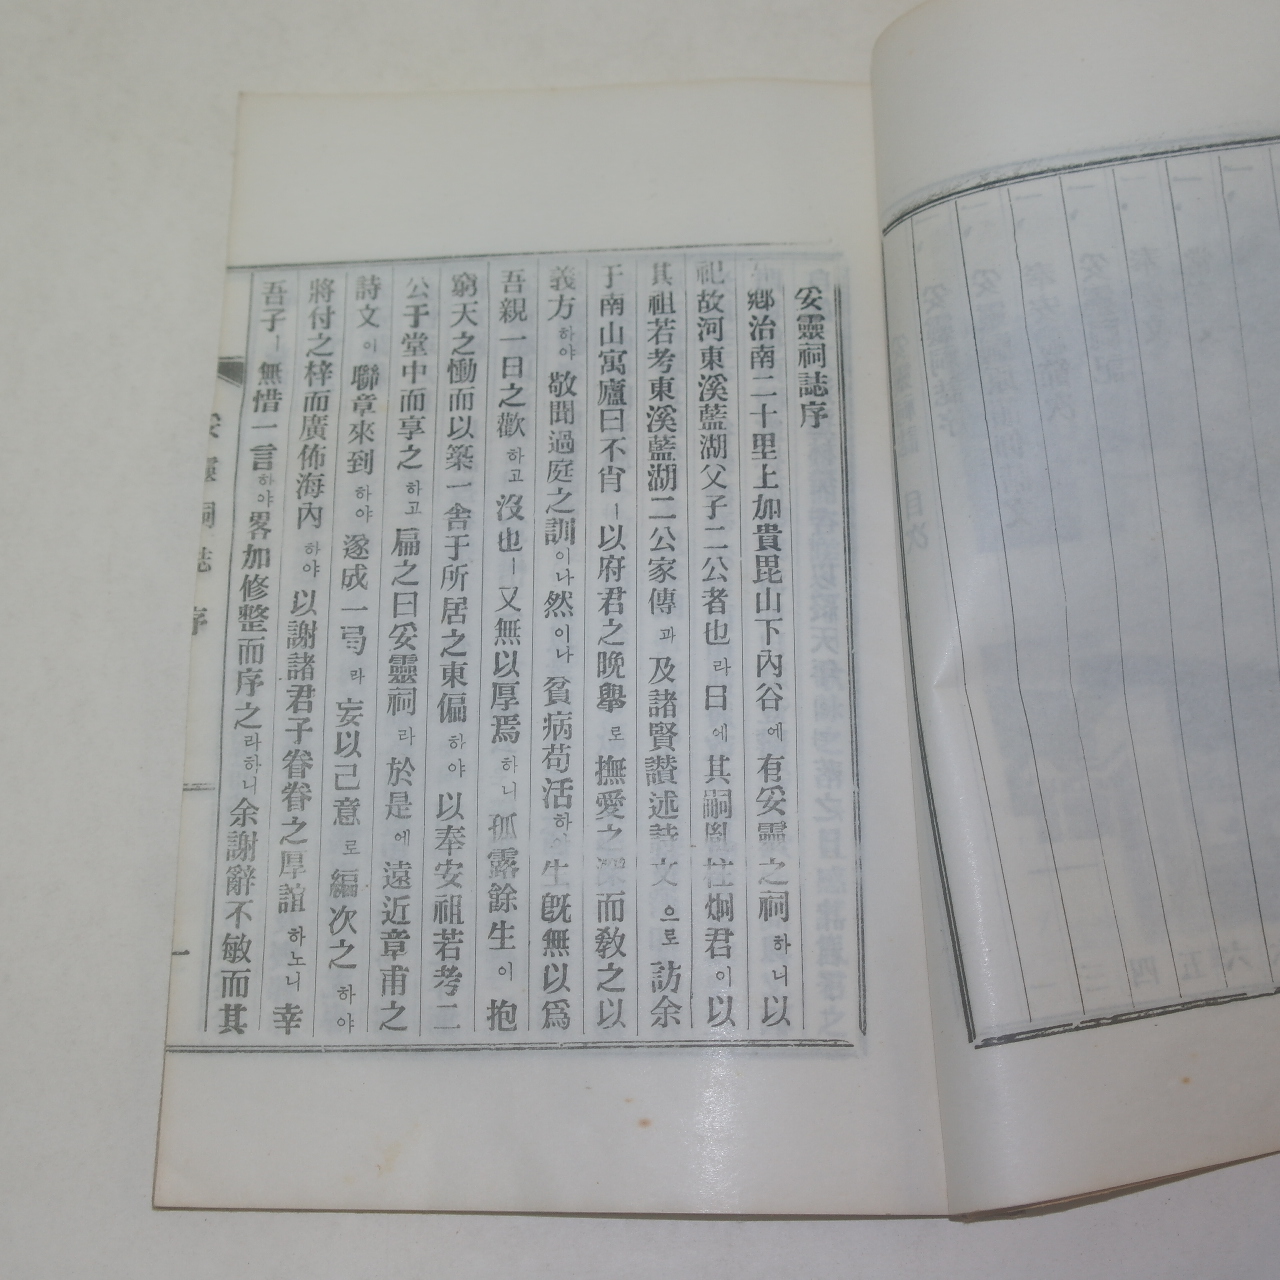 妥靈祠誌序
鄕治南二十里上加貴毘山下內谷에有妥靈之祠하니以
祀故河東溪藍湖父子二公者也라日에其嗣胤柱烱君이以
其祖若考東溪藍湖二公家傳과及諸賢讚述詩文으로訪余
于南山寓廬曰不肖ㅣ以府君之晩擧로撫愛之深而敎之以
義方하야敬聞過庭之訓이나然이나貧病苟活하야生旣無以爲
吾親一日之歡하고沒也ㅣ又無以厚焉하니孤露餘生이抱
窮天之慟而以築一舍于所居之東偏하야以奉安祖若考二
公于堂中而享之하고扁之曰妥靈祠라於是에遠近章甫之
詩文이聯章來到하야遂成一弓라妄以己意로編次之하야
將付之梓而廣佈海內하야以謝諸君子眷眷之厚誼하노니幸
吾子ㅣ無惜一言하야畧加修整而序之라하니余謝辭不敏而其
妥靈祠誌 序
一